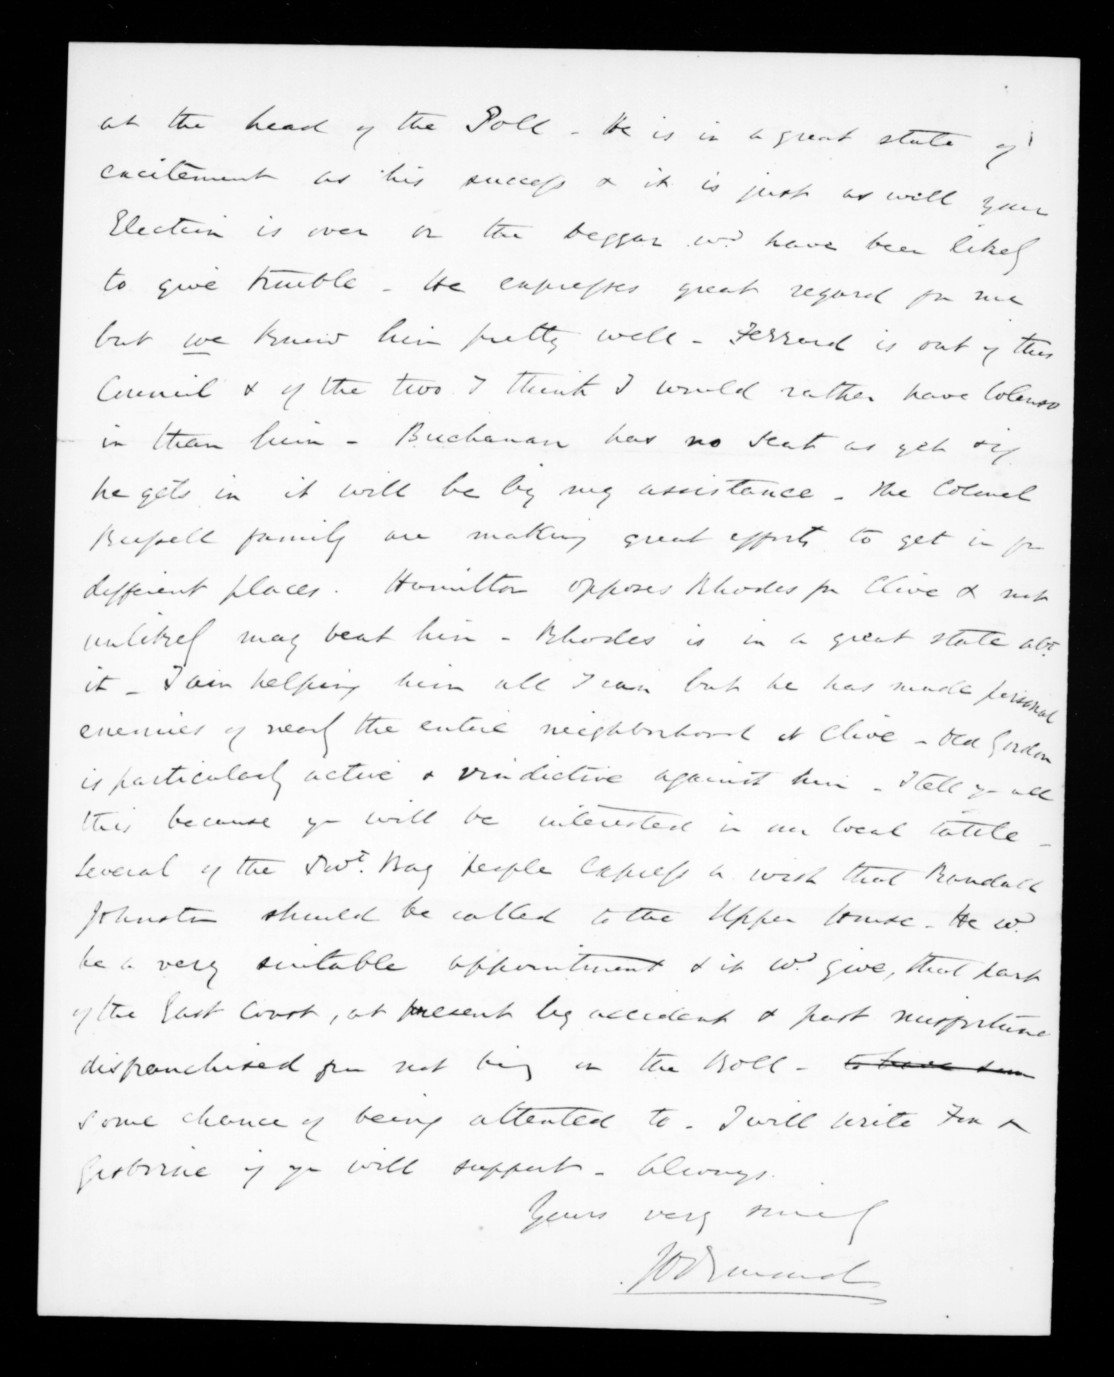 at the head of the Poll - He is in a great state of
excitement as his success & it is just as well your
Election is over or the beggar wd have been likely
to give trouble - He expresses great regard for me
but we know him pretty well - Ferrard is out of this
Council & of the two I think I would rather have Colenso
in than him - Buchanan has no seat as yet & if
he gets in it will be by my assistance - The Colonel
Russell family are making great efforts to get in for
different places. Hamilton opposes Rhodes for Clive & not
unlikely may beat him - Rhodes is in a great state abt
it - I am helping him all I can but he has made personal
enemies of nearly the entire neighborhood at Clive - Old Gordon
is particularly active & vindictive against him - I tell yr all
this because yr will be interested in our local tattle -
Several of the Povt. Bay people express a wish that Randall
Johnston should be called to the Upper House - He wd
be a very suitable appointment & it wd give, that part
of the East Coast, at present by accident & past misfortune
disfranchised for not being on the Roll - to have som
some chance of being attented to - I will write Fox &
Gisborne if yr will support - Always.
Yours very sincely
JD Ormond